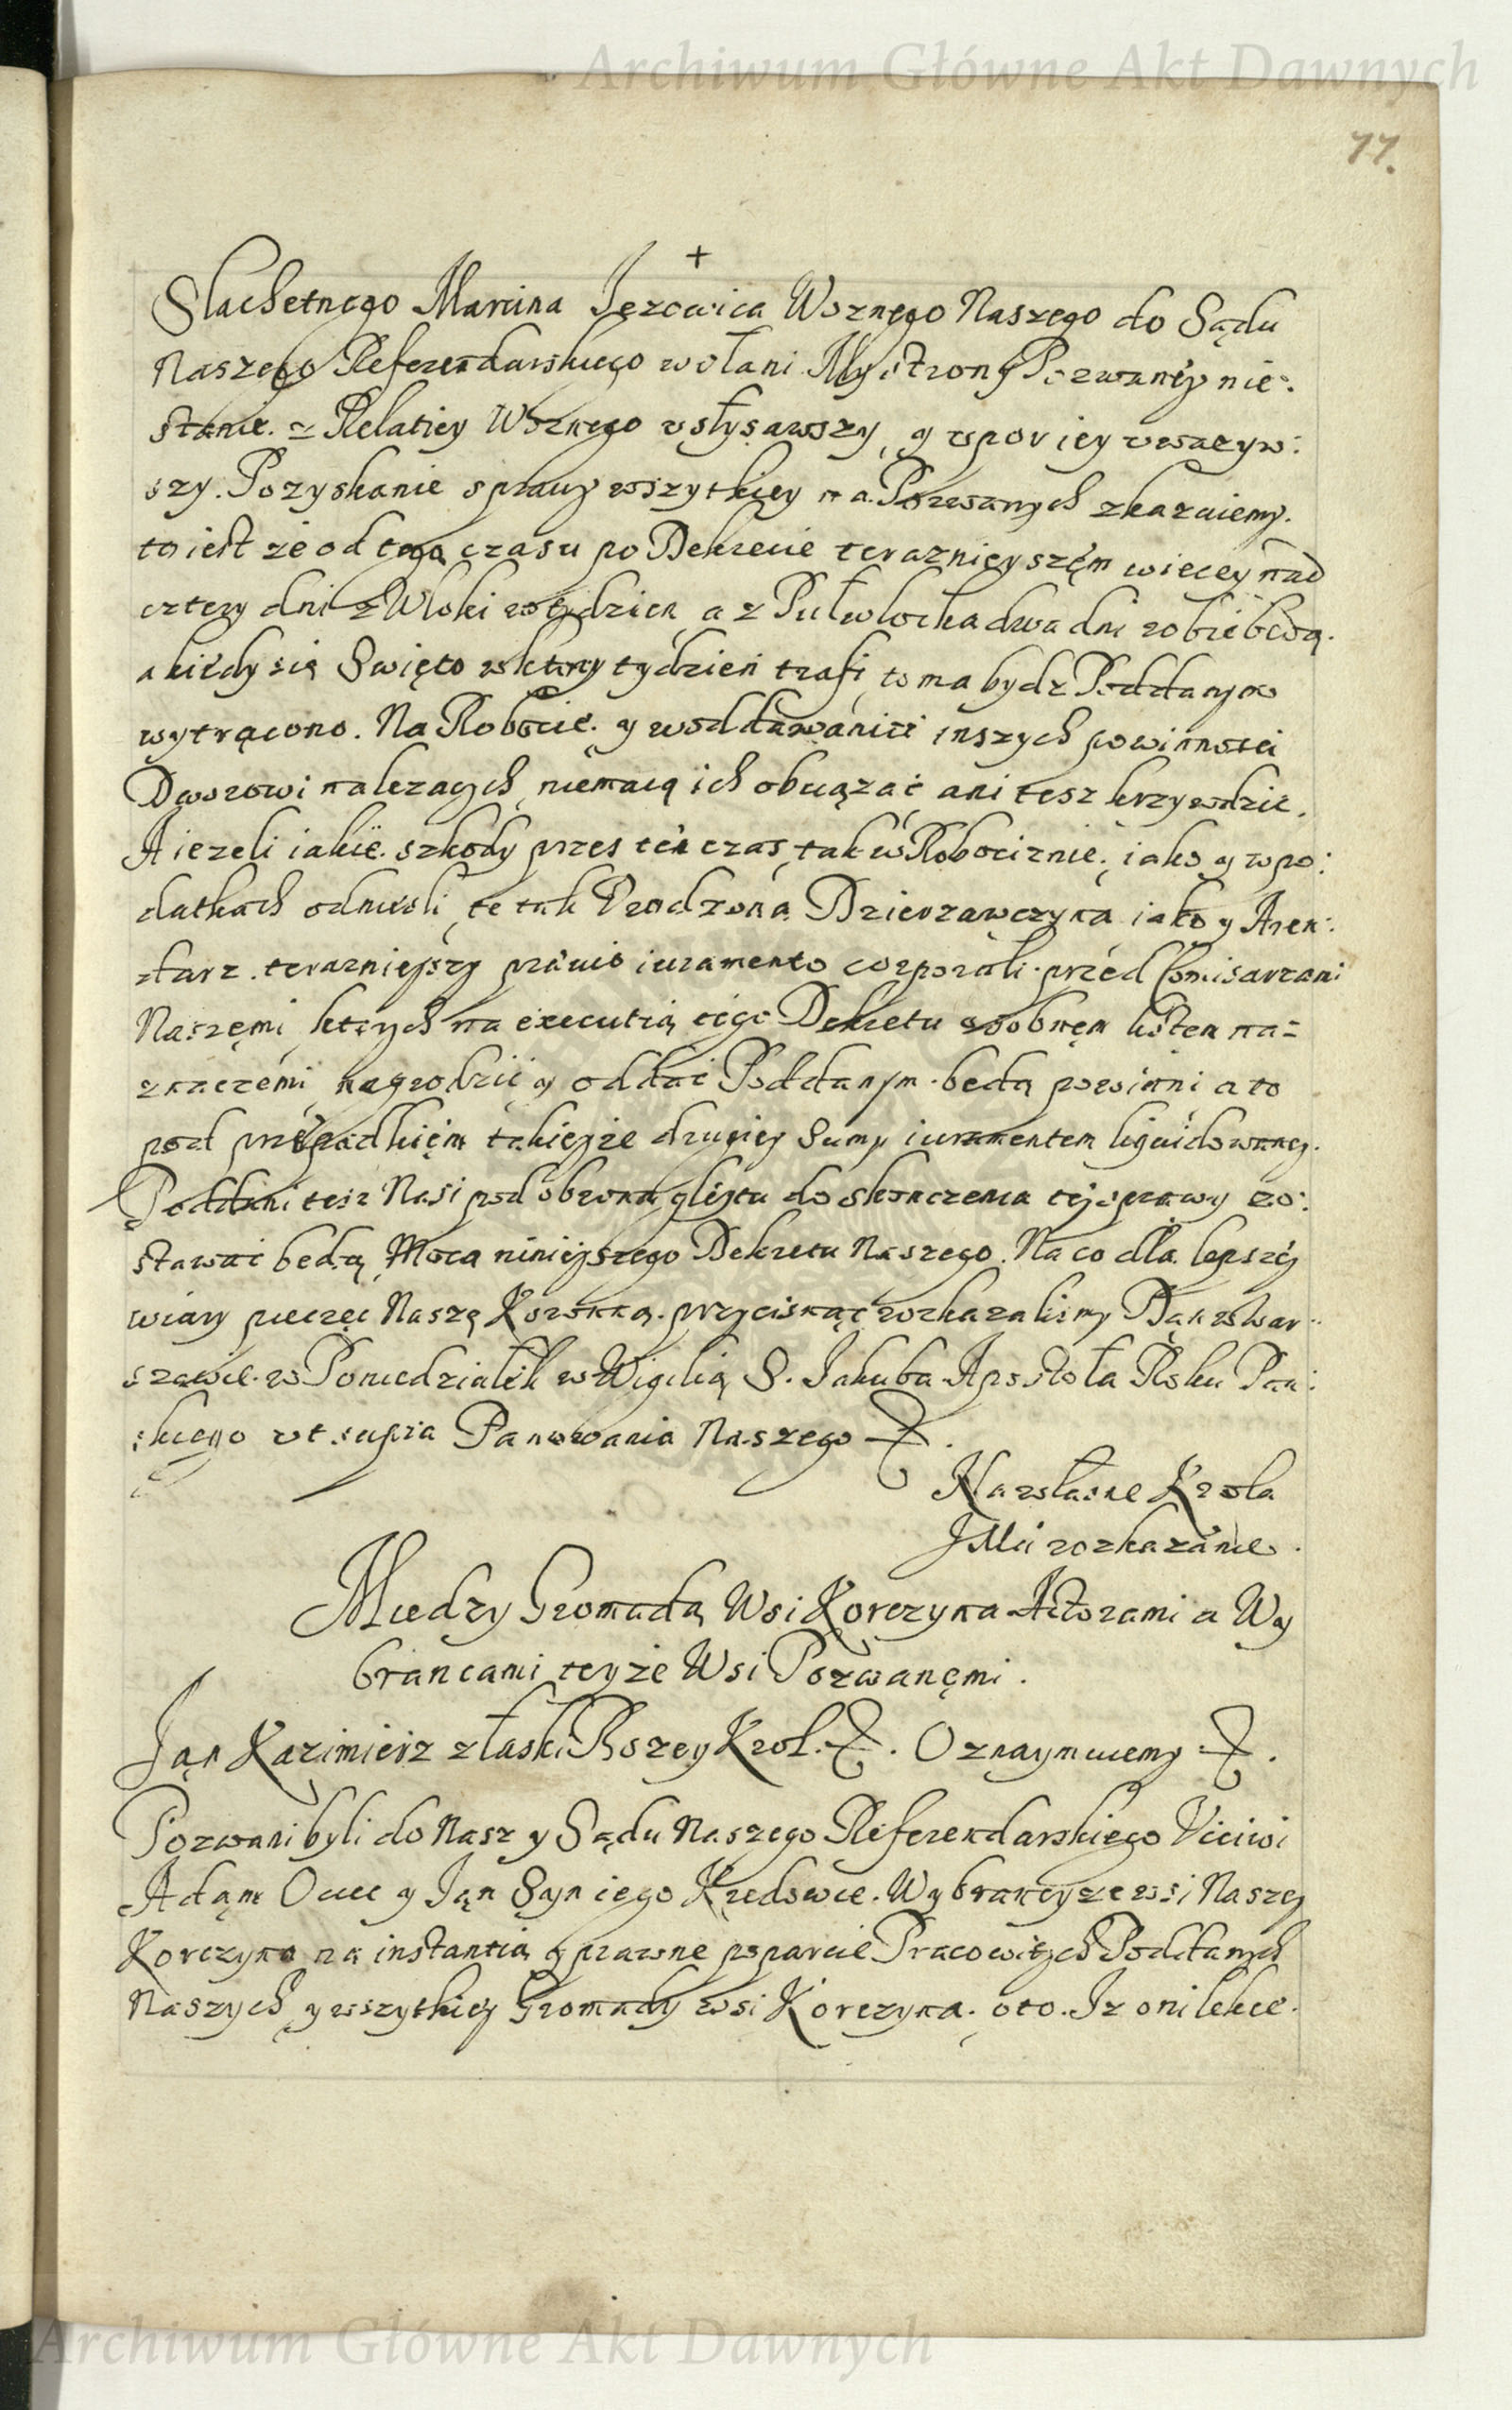 Archiwum Główne Akt Dawnych
77.
+
Slachetnego Marcina Jezowica Woznęgo Naszego do Sądu
Naszego Referendarskiego wołani. My strony Pozwanéy nie:
stanie. z Relatiey Woznego usłysawszy, y upor iey uwazyw:
szy. Pozyskanie sprawy wszytkiey na Pozwanych zkazuiemy.
to iest że od tego czasu po Dekrecie teraznieyszęm wiecey nad
cztery dni z Włoki w tydzien, a z Pułwłocka dwa dni robić będą.
a kiedy się Swięto w ktory tydzień trafi, to ma bydz Poddanym
wytrącono. Na Robocie. y w oddawaniu inszych powinnosci
Dworowi nalezących, niemaią ich obciązać ani tesz krzywdzić.
A iezeli iakie szkody przes ten czas, tak w Robociznie. iako y w po:
datkach odniesli, te tak Urodzona Dzierzawczyna iako y Aren:
darz terazniejszy prévio iuramento corporali. przed Comisarzami
Naszęmi ktorych na executią tego Dekretu osobnęm listem na=
znaczemi, nagrodzić y oddać Poddanym. będą powinni a to
pod przépadkięm takieyze drugiey Sumy iuramentem liquidowaney.
Poddani tesz Nasi pod obroną gleytu do skonczenia tej sprawy zo:
stawać będą, Mocą niniejszego Dekretu Naszego. Na co dla lepszéj
wiary pieczęc Naszę Koronną. przycisnąć rozkazalismy Dan w War:
szawie. w Poniedziałek w Wigilią S. Jakuba Apostoła Roku Pan:
skiego ut supra Panowania Naszego &.
Na własne Krola
JMci rozkazanie.
Miedzy Gromadą Wsi Korczyna Actorami a Wy
brancami teyże Wsi Pozwanęmi.
Jąn Kazimierz z łaski Bozey Krol. &. Oznaymuiemy &.
Pozwani byli do Nas y Sądu Naszego Referendarskiego Uciwi
Adąm Ociec y Jąn Syn iego Kredowie. Wybrancy ze wsi Naszey
Korczyna na instantią y prawne poparcie Pracowitych Poddanych
Naszych y wszytkiey Gromady wsi Korczyna. oto. Iz oni lekce.
Archiwum Główne Akt Dawnych